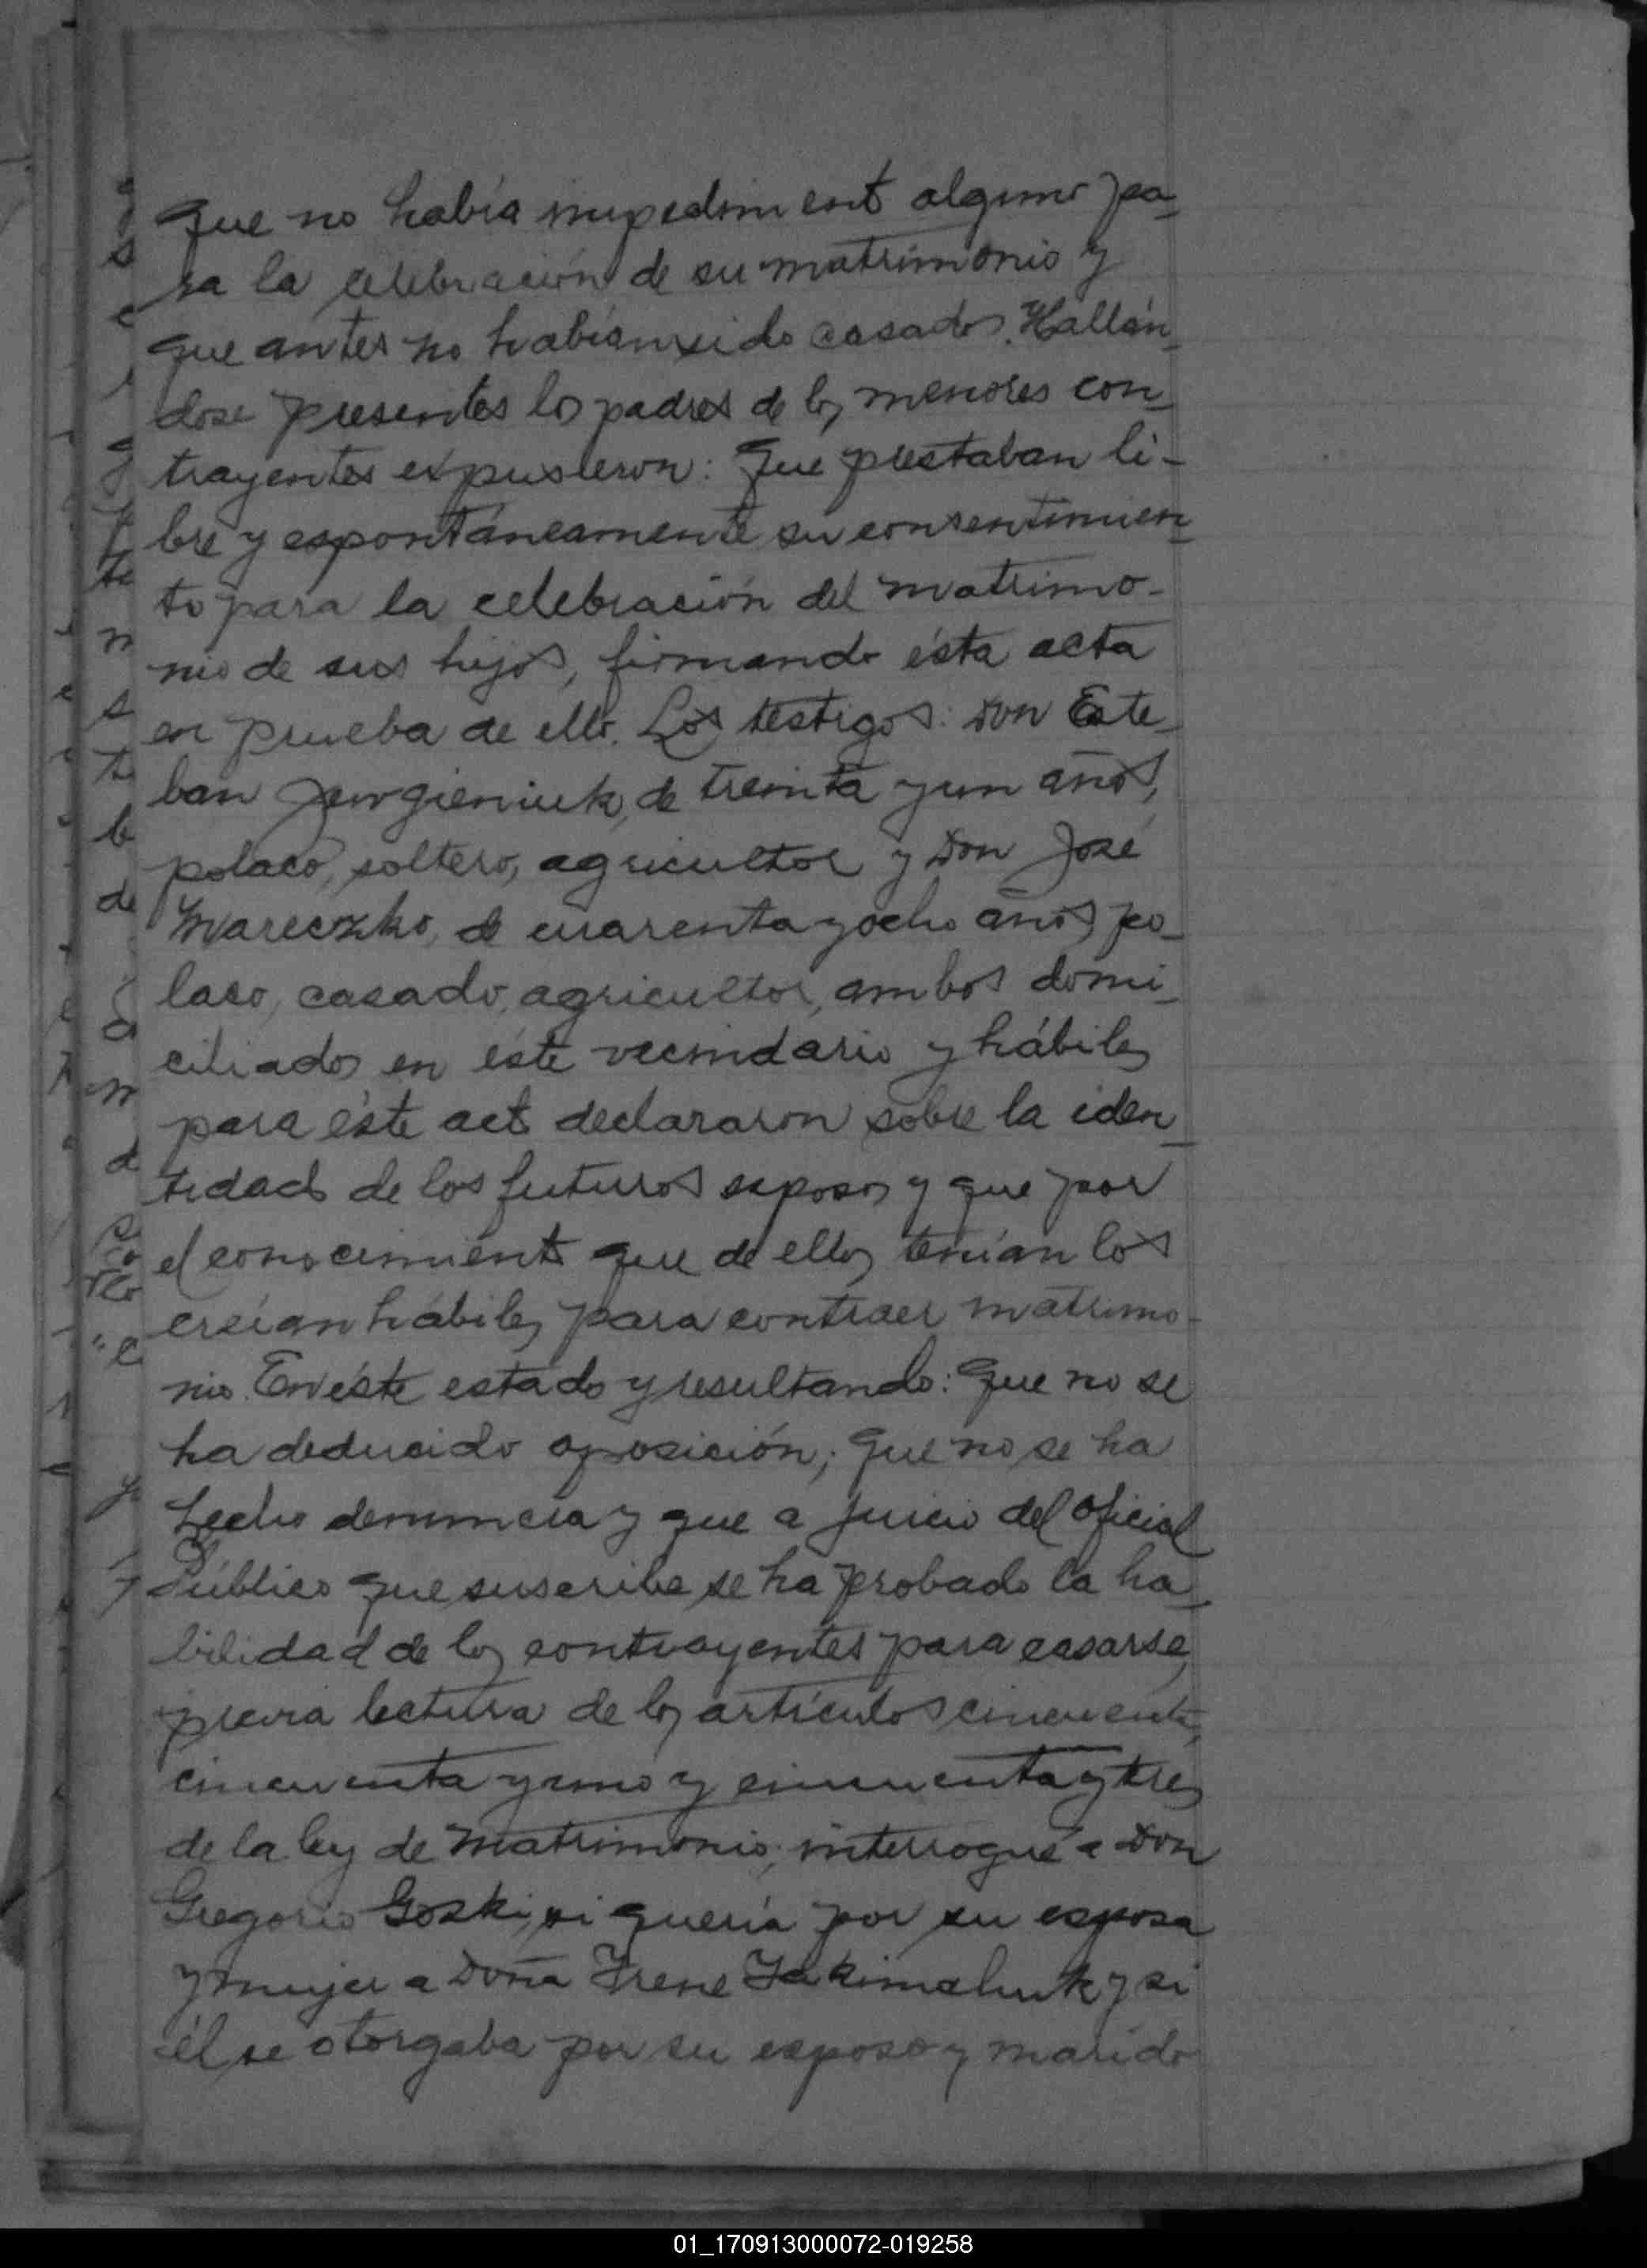 Que no había impediment alguno pa-
ra la celebración de su matrimonio y
que antes no habían sido casados. Hallán-
dose presentes los padres de los menores con-
trayentes expusieron: Que prestaban li-
bre y espontáneamente su consentimien-
to para la celebración del matrimo-
nio de sus hijos, firmando ésta acta
en prueba de ello. Los testigos: Don Este-
ban Jewgieniuk, de treinta y un años,
polaco, soltero, agricultor y Don José
Mareczko, de cuarenta y ocho años, po-
laco, casado, agricultor, ambos domi-
ciliados en éste vecindario y hábiles
para éste acto declararon sobre la iden-
tidad de los futuros esposos y que por
el conocimiento que de ellos tenían los
creían hábiles para contraer matrimo-
nio. En éste estado y resultando: Que no se
ha deducido oposición; Que no se ha
hecho denuncia y que a juicio del Oficial
Público que suscribe se ha probado la ha-
bilidad de los contrayentes para casarse,
previa lectura de los artículos cincuenta,
cincuenta y uno y cincuenta y tres
de la ley de Matrimonio, interrogué a Don
Gregorio Goski, si quería por su esposa
y mujer a Doña Irene Yakimchuk y si
él se otorgaba por su esposo y marido
01_170913000072-019258